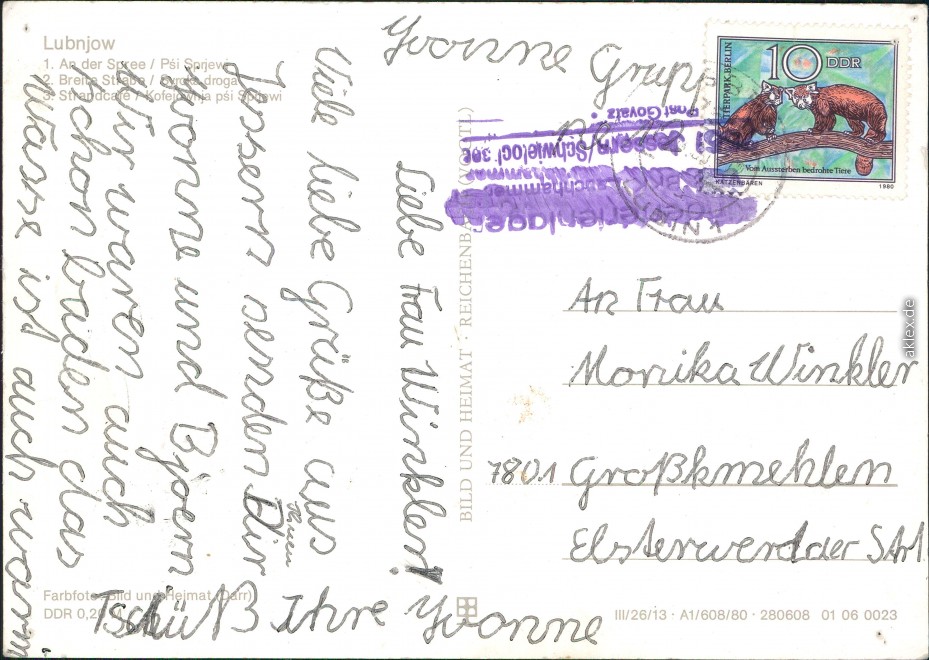 Lubnjow
1. An der Spree / Pśi Sprjewje
2. Breite Straße / Šyroka droga
3. Strandcafé / Kofejownja pśi Sprjewi
Yvonne
Grupp
10 DDR
TIERPARK BERLIN
Vom Aussterben bedrohte Tiere
KATZENBÄREN
1980
Post Goyatz
Jessern/Schwielochsee
Liebe Frau Winkler!
Viele liebe Grüße aus
Jessern senden Dir
Ihnen
Yvonne und Bjoern.
Wir waren auch
schon baden das
Wasse ist auch warm.
Tschüß Ihre Yvonne
BILD UND HEIMAT · REICHENBACH (VOGTL)
An Frau
Monika Winkler
7801 Großkmehlen
Elsterwerdaer Str 1
Farbfotos: Bild und Heimat (Darr)
DDR 0,20 M
III/26/13 · A1/608/80 · 280608 01 06 0023
aklex.de